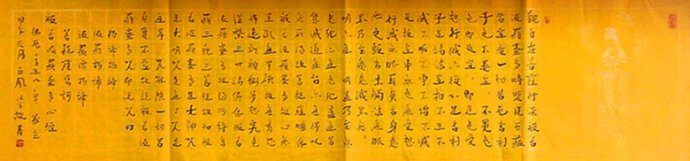 觀自在菩薩行深般若
波羅蜜多時照見五蘊
皆空度一切苦厄舍利
子色不異空空不異色
色即是空空即是色受
想行識亦復如是舍利
子是諸法空相不生不
滅不垢不淨不增不減
是故空中無色無受想
行識無眼耳鼻舌身意
無色聲香味觸法無眼
界乃至無意識界無無
明亦無無明盡乃至無
老死亦無老死盡無苦
集滅道無智亦無得以
無所得故菩提薩埵依
般若波羅蜜多故心無
罣礙無罣礙故無有恐
怖遠離顛倒夢想究竟
涅槃三世諸佛依般若
波羅蜜多故得阿耨多
羅三藐三菩提故知般
若波羅蜜多是大神咒
是大明咒是無上咒是
無等等咒能除一切苦
真實不虛故說般若波
羅蜜多咒即說咒曰
揭諦揭諦
波羅揭諦
波羅僧揭諦
菩提薩婆訶
般若波羅蜜多心經
甲午